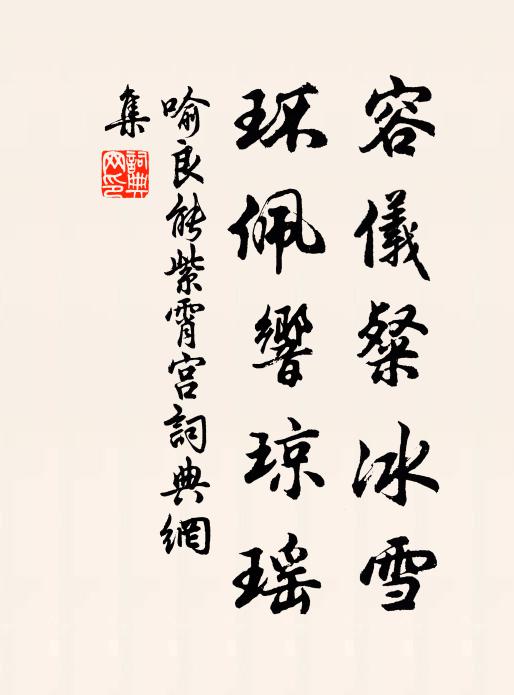 容儀粲冰雪
环佩響琼瑶
喻良能紫霄宫詞典網
集
詞典
网印